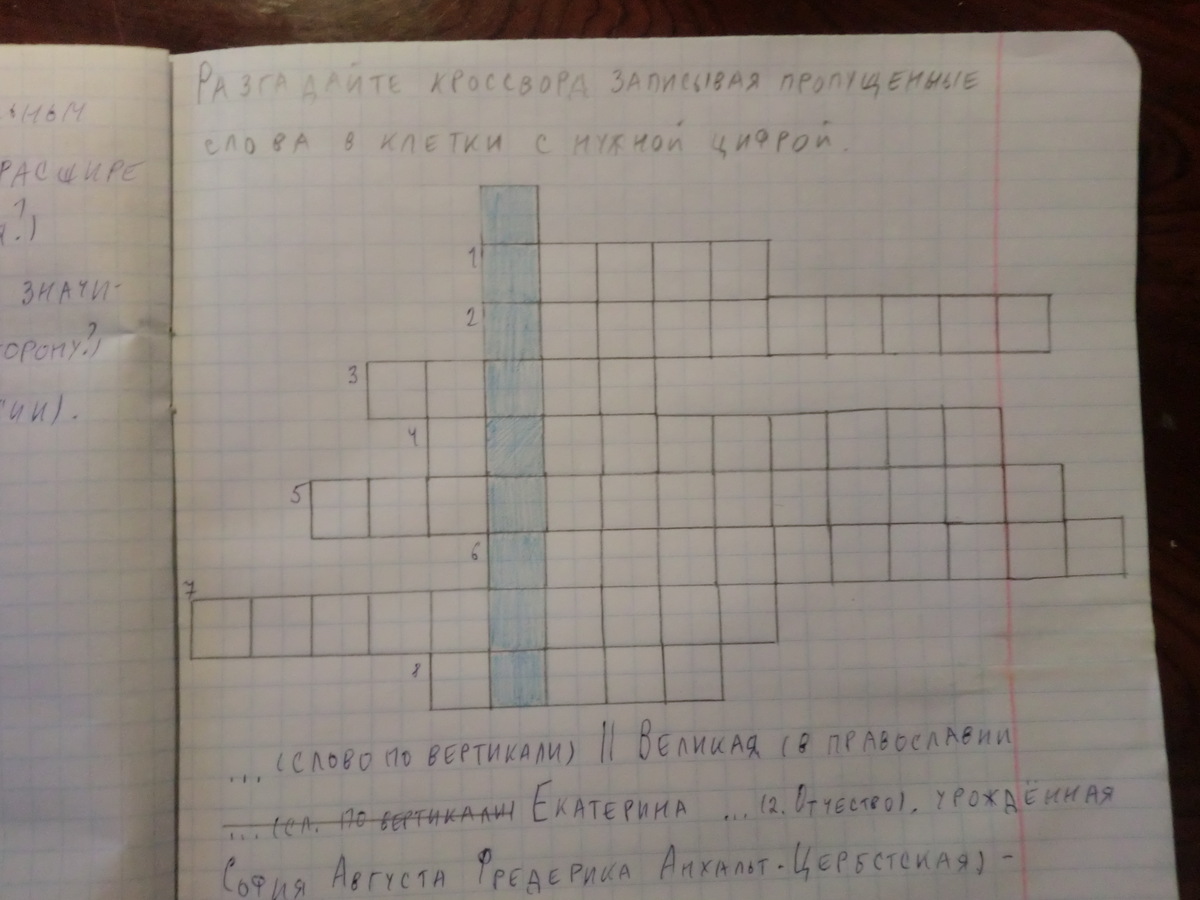 ЬНЫМ
РАСШИРЕ
?)
ЗНАЧИ-
ОРОНУ?)
ИИ).
РАЗГАДАЙТЕ КРОССВОРД ЗАПИСЫВАЯ ПРОПУЩЕННЫЕ
СЛОВА В КЛЕТКИ С НУЖНОЙ ЦИФРОЙ.
1
2
3
4
5
6
7
8
... (СЛОВО ПО ВЕРТИКАЛИ) II ВЕЛИКАЯ (В ПРАВОСЛАВИИ
... (СЛ. ПО ВЕРТИКАЛИ) ЕКАТЕРИНА ... (2. ОТЧЕСТВО), УРОЖДЁННАЯ
СОФИЯ АВГУСТА ФРЕДЕРИКА АНХАЛЬТ-ЦЕРБСТСКАЯ) -